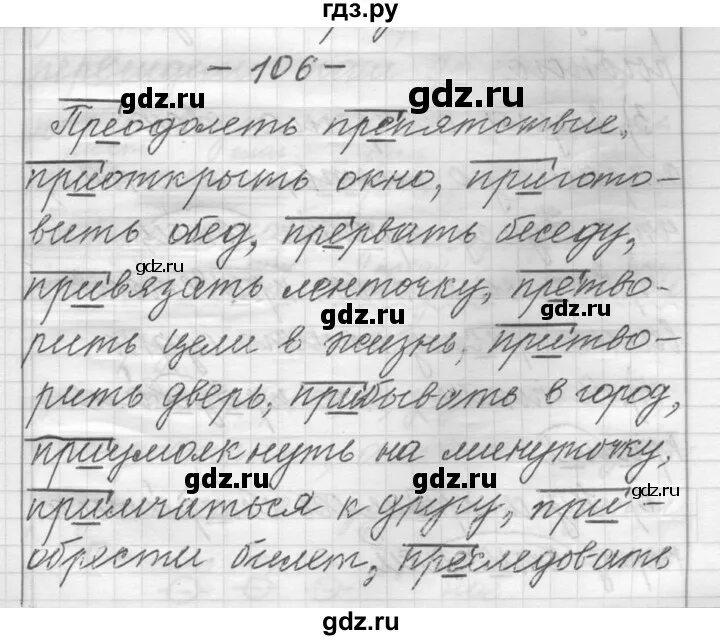 гдз.ру
- 106 -
Преодолеть препятствие,
приоткрыть окно, пригото-
вить обед, прервать беседу,
привязать ленточку, претво-
рить цели в жизнь, притво-
рить дверь, прибывать в город,
приумолкнуть на минуточку,
примчаться к другу, при-
обрести билет, преследовать
gdz.ru
gdz.ru
gdz.ru
gdz.ru
gdz.ru
gdz.ru
gdz.ru
gdz.ru
gdz.ru
gdz.ru
gdz.ru
gdz.ru